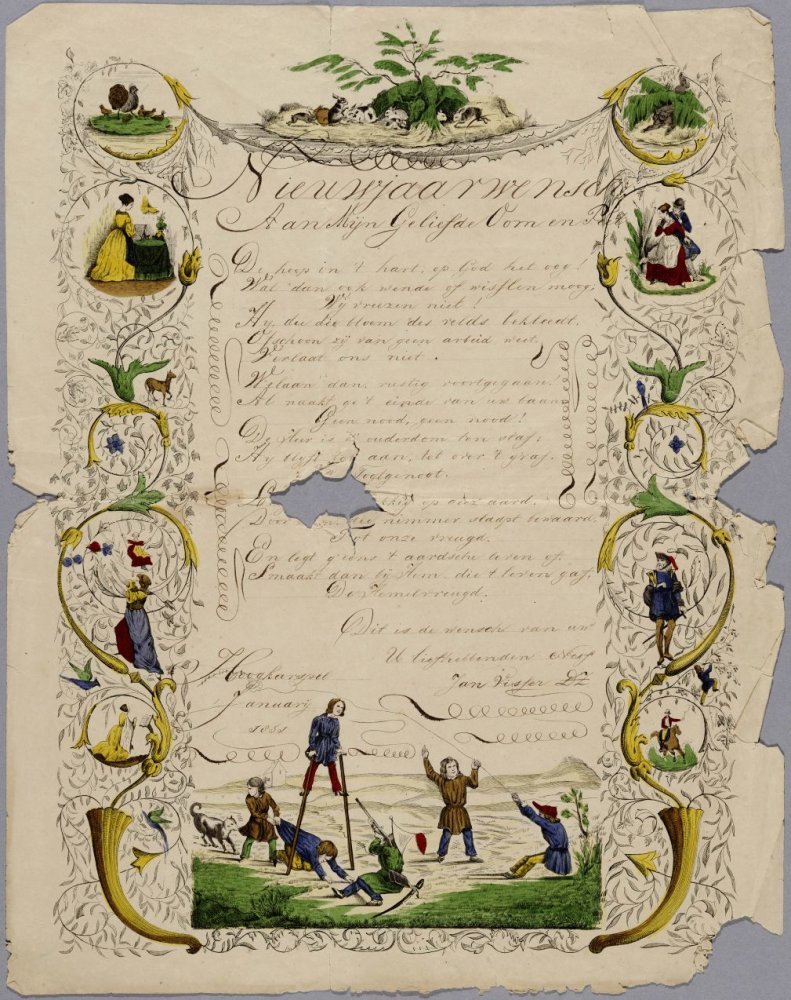 Nieuwjaarwensch
Aan Mijn Geliefde Oom en
De hoop in 't hart, op God het oog!
Wat dan ook wende of wisslen moog,
Wij vreezen niet!
Hy die die bloem des velds bekleedt,
Ofschoon zij van geen arbeid weet,
Verlaat ons niet.
Welaan dan, rustig voortgegaan!
Al naakt ge 't einde van uw baan,
Geen nood, geen nood!
De Heer is d' ouderdom ten staf;
Hy blyft tot over 't graf,
Togtgenoot.
op onz aard,
nimmer bewaard,
onze vreugd.
En legt g'eens 't aardsche leven af,
Smaakt dan bij Hem, die 't leven gaf,
De Hemelvreugd.
Dit is de wensch van uw
U liefhebbenden Neef
Hoogkarspel Jan Visser Dz
Januarij
1851